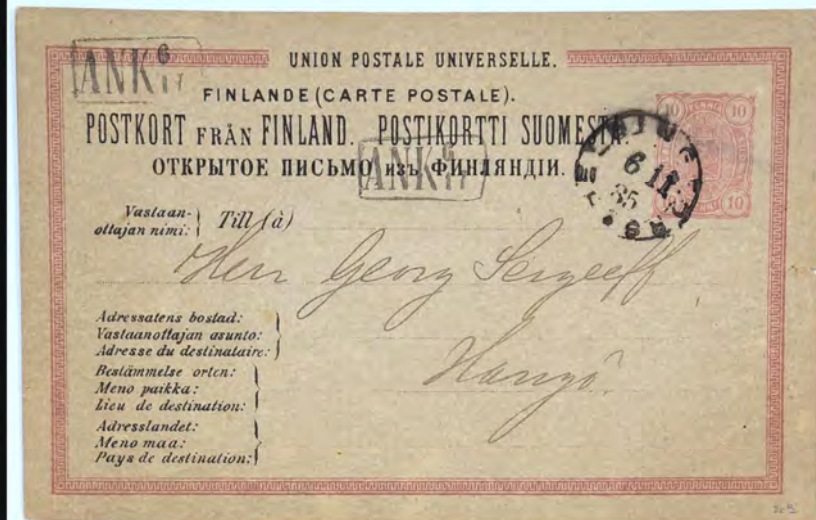 UNION POSTALE UNIVERSELLE.
FINLANDE (CARTE POSTALE).
POSTKORT FRÅN FINLAND. POSTIKORTTI SUOMESTA.
ОТКРЫТОЕ ПИСЬМО изъ ФИНЛЯНДІИ.
ANK 6 11
ANK 6 11
10 PENNIÄ 10
10 10
6 11
85
Vastaan-
ottajan nimi:
Till (à)
Herr Georg Sergeeff
Adressatens bostad:
Vastaanottajan asunto:
Adresse du destinataire:
Hangö
Bestämmelse orten:
Meno paikka:
Lieu de destination:
Adresslandet:
Meno maa:
Pays de destination: